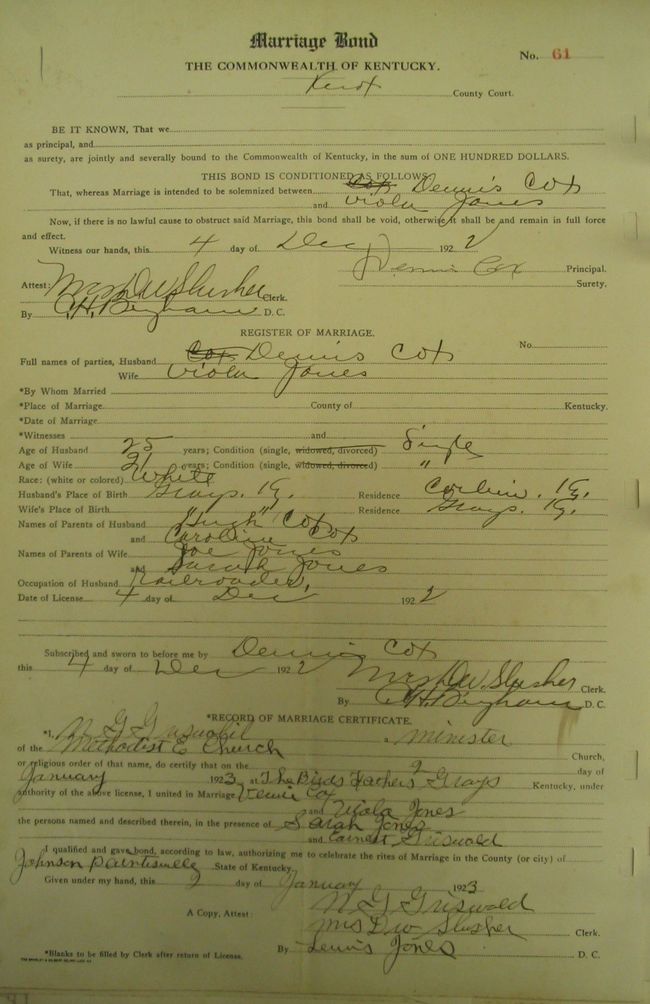 Marriage Bond
No. 61
THE COMMONWEALTH OF KENTUCKY.
Knox County Court.
BE IT KNOWN, That we
as principal, and
as surety, are jointly and severally bound to the Commonwealth of Kentucky, in the sum of ONE HUNDRED DOLLARS.
THIS BOND IS CONDITIONED AS FOLLOWS:
That, whereas Marriage is intended to be solemnized between Cox Dennis Cox
and Viola Jones
Now, if there is no lawful cause to obstruct said Marriage, this bond shall be void, otherwise it shall be and remain in full force
and effect.
Witness our hands, this 4 day of Dec 1922
Dennis Cox Principal.
Surety.
Attest: Mrs D W Slusher Clerk.
By C. H. Bingham D. C.
REGISTER OF MARRIAGE.
No.
Full names of parties, Husband Cox Dennis Cox
Wife Viola Jones
*By Whom Married
*Place of Marriage County of Kentucky.
*Date of Marriage
*Witnesses and
Age of Husband 25 years; Condition (single, widowed, divorced) Single
Age of Wife 21 years; Condition (single, widowed, divorced) "
Race: (white or colored) White
Husband's Place of Birth Grays. Ky. Residence Corbin. Ky.
Wife's Place of Birth Residence Grays. Ky.
Names of Parents of Husband "Hugh" Cox
and Caroline Cox
Names of Parents of Wife Joe Jones
and Sarah Jones
Occupation of Husband Railroader,
Date of License 4 day of Dec 1922
Subscribed and sworn to before me by Dennis Cox
this 4 day of Dec 1922 Mrs D.W. Slusher Clerk.
By C. H. Bingham D. C.
*RECORD OF MARRIAGE CERTIFICATE.
*I, N G Griswold a minister
of the Methodist E Church Church,
or religious order of that name, do certify that on the 2 day of
January 1923 at The Birds Fathers Grays Kentucky, under
authority of the above license, I united in Marriage Cox
and Viola Jones
the persons named and described therein, in the presence of Sarah Jones
and Earnest Griswold
I qualified and gave bond, according to law, authorizing me to celebrate the rites of Marriage in the County (or city) of
Johnson Paintsville State of Kentucky
Given under my hand, this 2 day of January 1923
N G Griswold
A Copy, Attest: Mrs D W Slusher Clerk.
By Lewis Jones D. C.
*Blanks to be filled by Clerk after return of License.